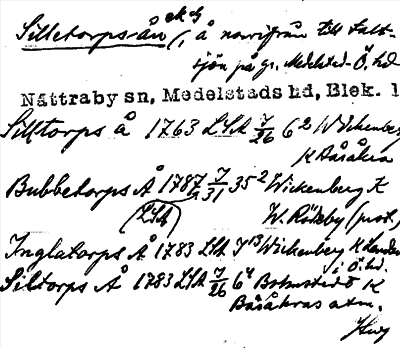 Silletorps-ån ek ds, å norrifrån till Salt-
sjön på gr. Medelstad-Ö. hd
Nättraby sn, Medelstads hd, Blek. l
Silltorps å 1763 LSA J/26 6² Wickenberg
K Båsåkra
Bubbetorps Å 1787 J/31 35² Wickenberg K
(LSA) W. Rödeby (prot.)
Inglatorps Å 1783 LSA J 13 Wickenberg K
i Ö. hd.
Siltorps Å 1783 LSA J/26 6⁴ K
Båsåkras utm.